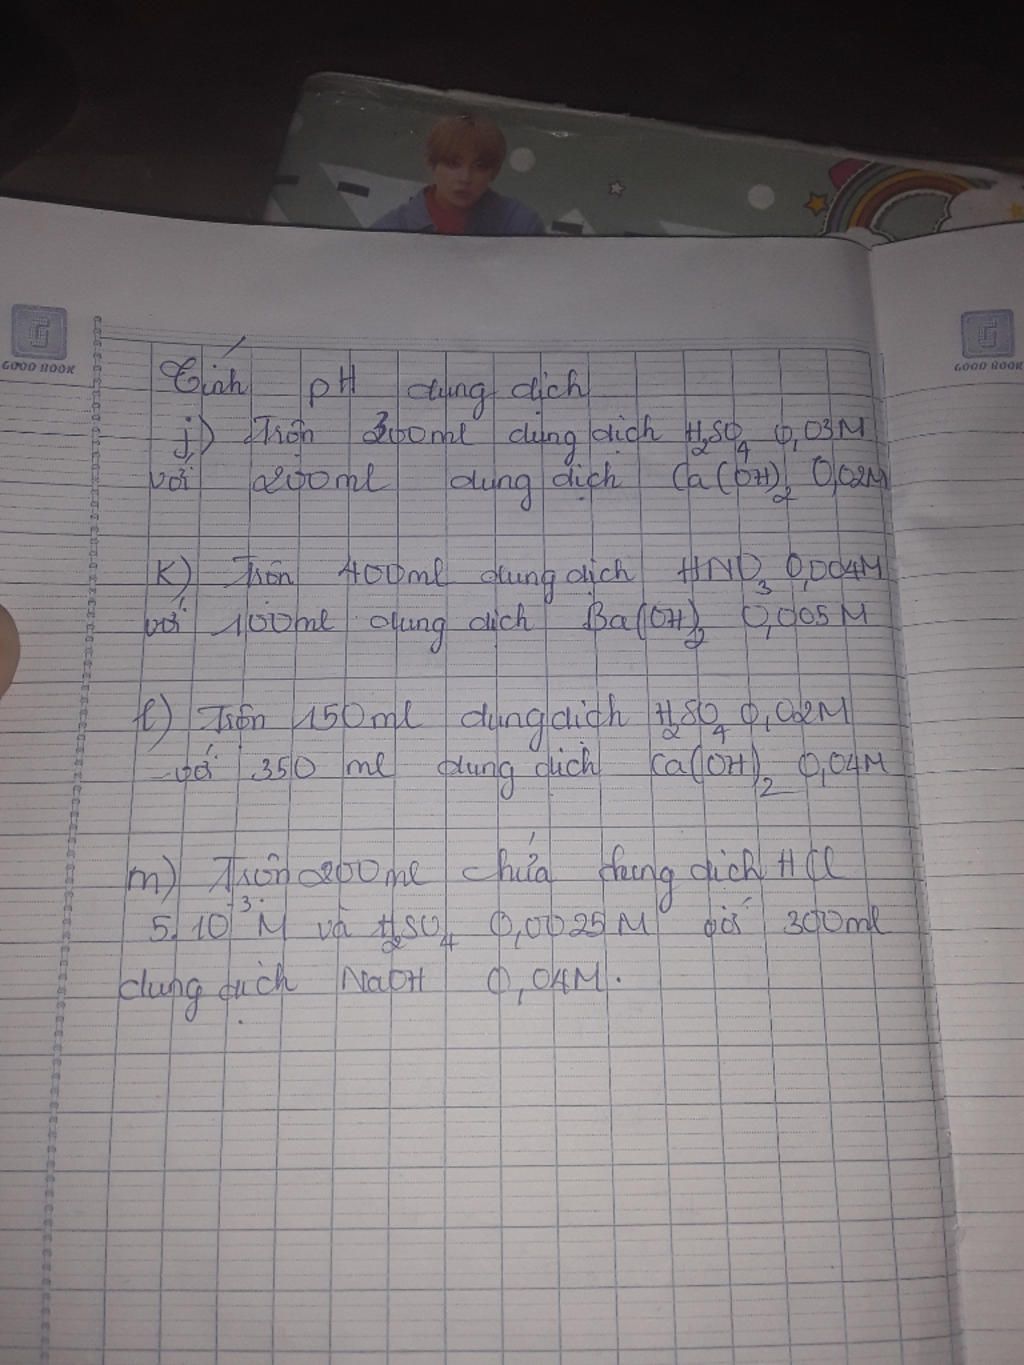 G
GOOD BOOK
G
GOOD BOOK
Tính pH dung dịch
j) Trộn 300ml dung dịch H₂SO₄ 0,03M
với 200ml dung dịch Ca(OH)₂ 0,02M
k) Trộn 400ml dung dịch HNO₃ 0,004M
với 100ml dung dịch Ba(OH)₂ 0,005M
l) Trộn 150ml dung dịch H₂SO₄ 0,02M
với 350 ml dung dịch Ca(OH)₂ 0,04M
m) Trộn 200ml chứa dung dịch HCl
5.10⁻³M và H₂SO₄ 0,0025M với 300ml
dung dịch NaOH 0,04M.